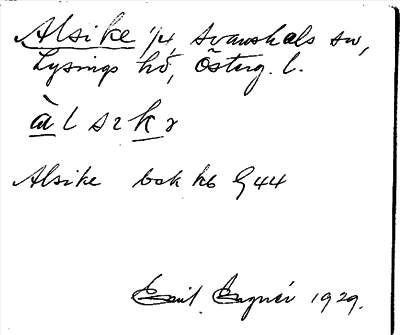 Alsike 1/4, Svanshals sn,
Lysings hd, Österg. l.
àlsikə
Alsike bok kb G 44
Emil 1929.